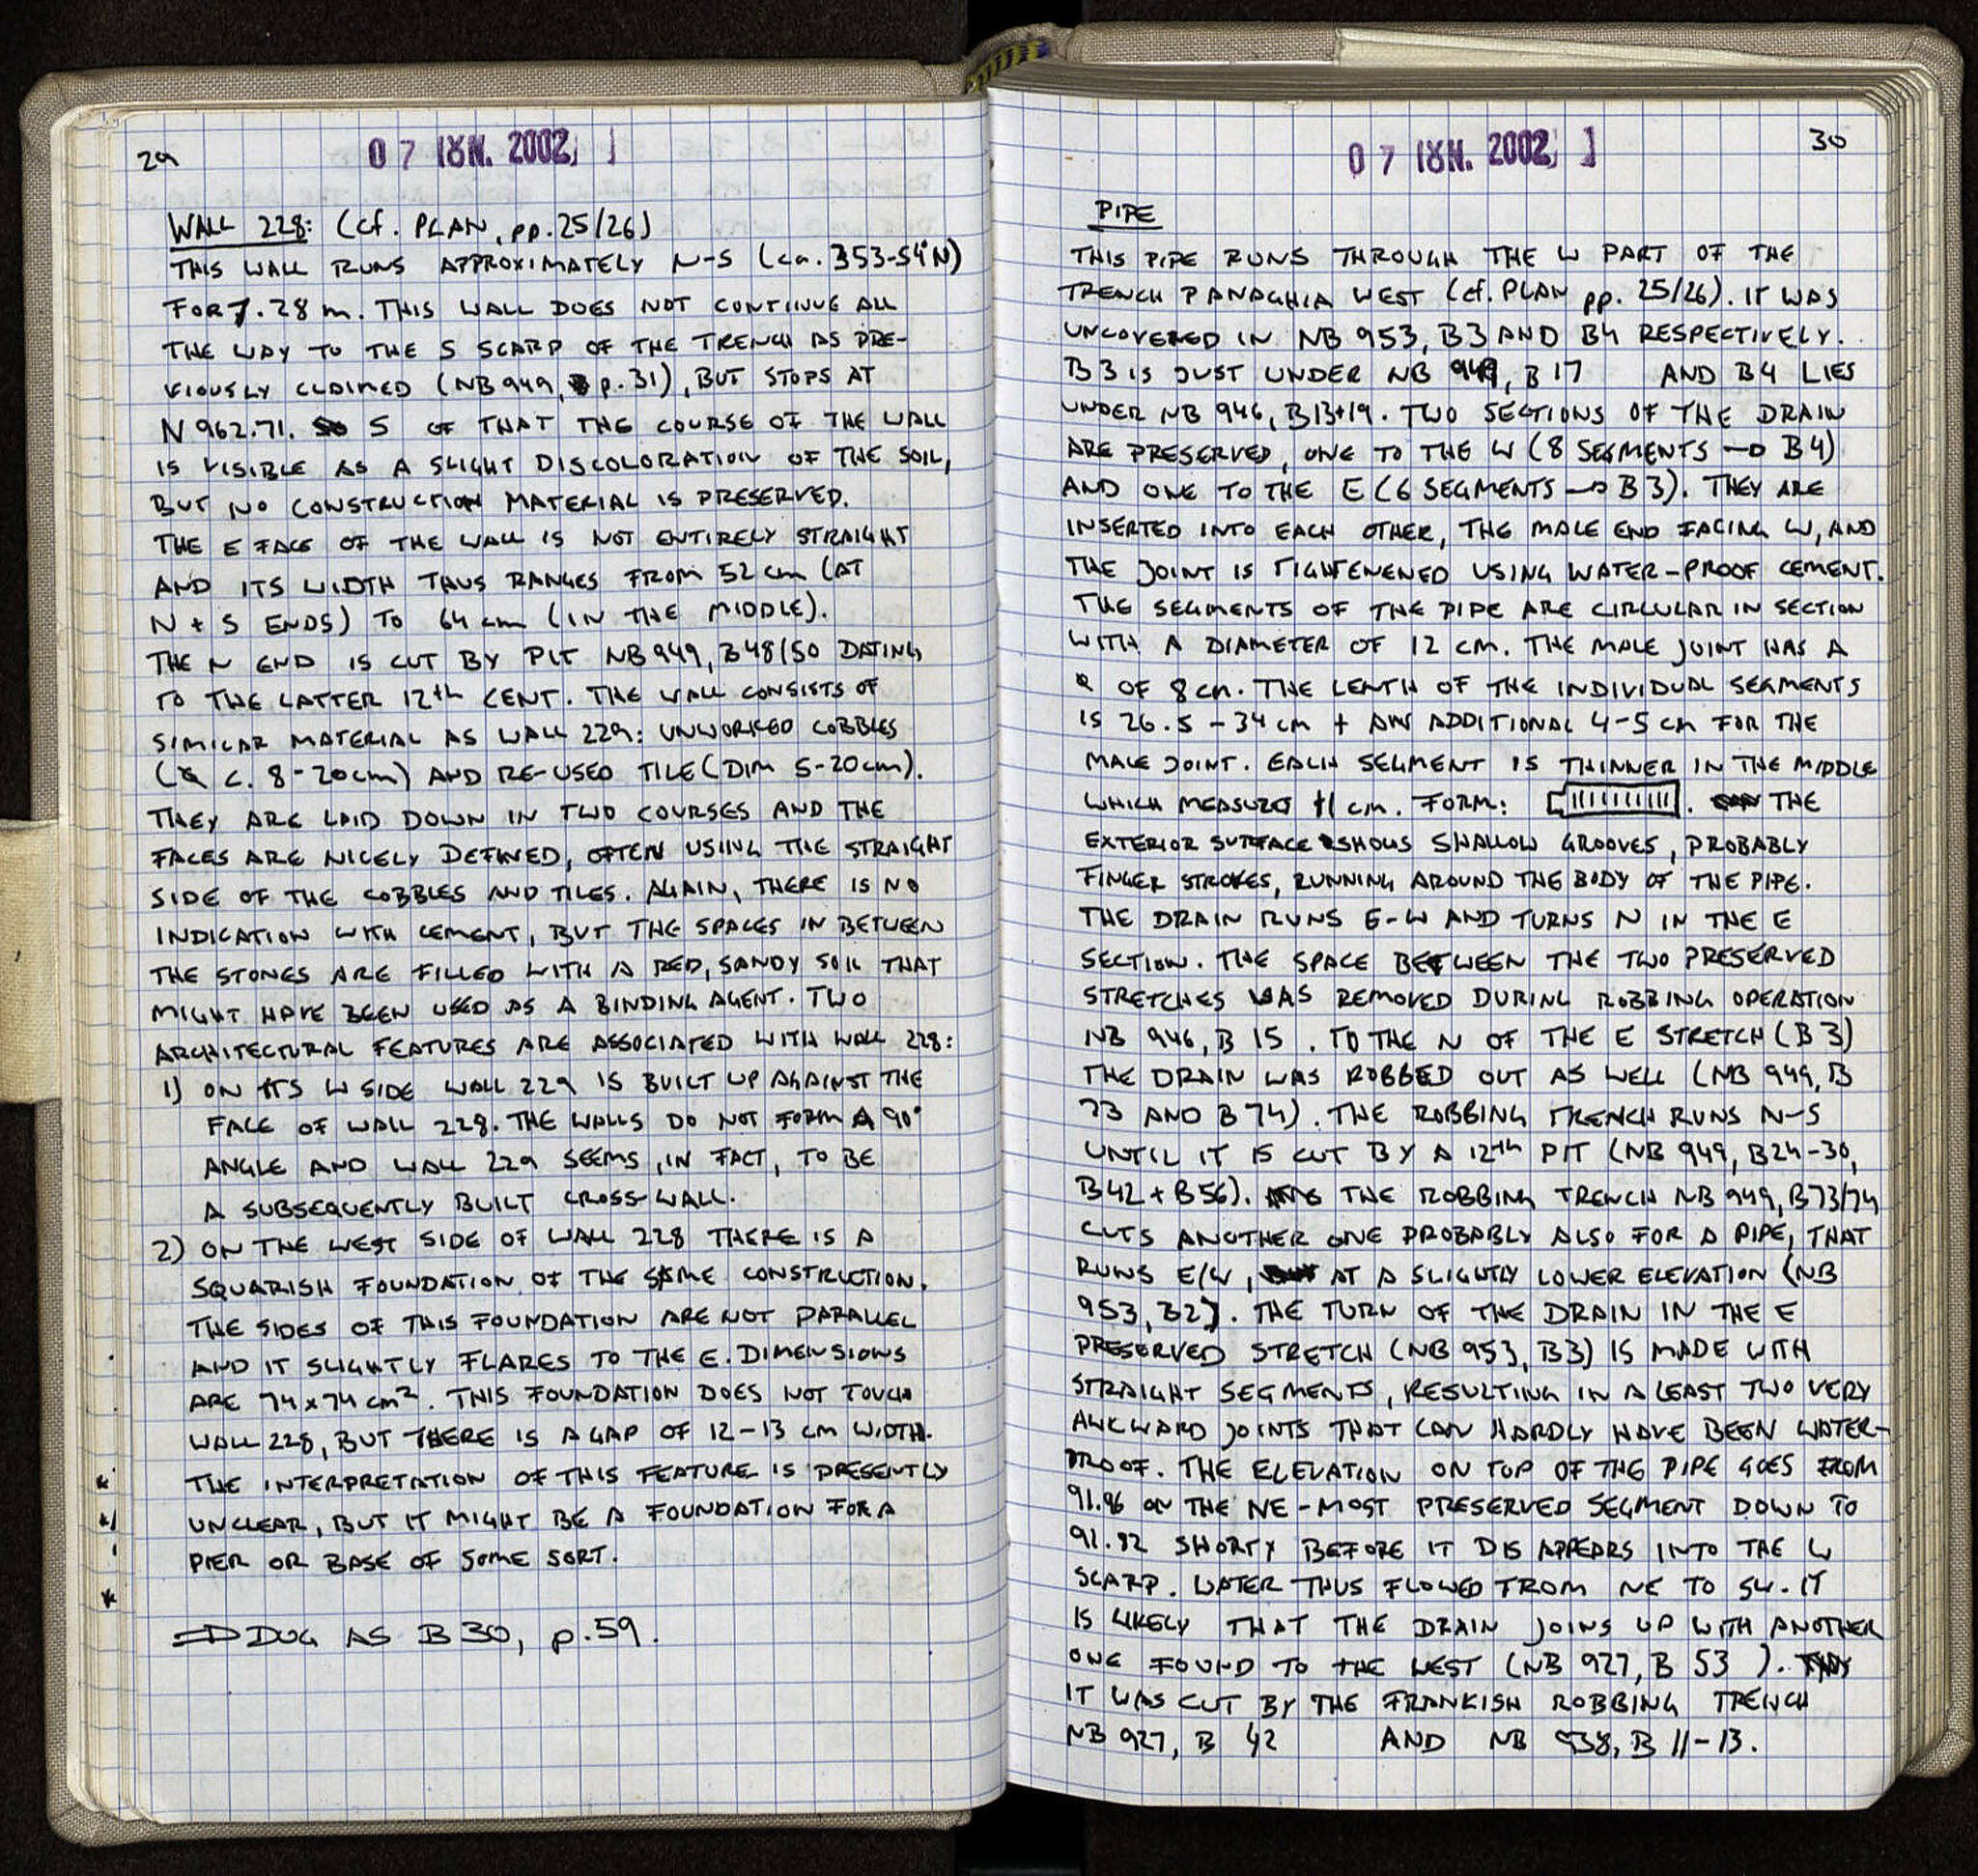 29
07 ΙΟΥΝ. 2002
WALL 228: (cf. PLAN, pp. 25/26)
THIS WALL RUNS APPROXIMATELY N-S (ca. 353-54°N)
FOR 7.28 m. THIS WALL DOES NOT CONTINUE ALL
THE WAY TO THE S SCARP OF THE TRENCH AS PRE-
VIOUSLY CLAIMED (NB 949, p. 31), BUT STOPS AT
N 962.71. S OF THAT THE COURSE OF THE WALL
IS VISIBLE AS A SLIGHT DISCOLORATION OF THE SOIL,
BUT NO CONSTRUCTION MATERIAL IS PRESERVED.
THE E FACE OF THE WALL IS NOT ENTIRELY STRAIGHT
AND ITS WIDTH THUS RANGES FROM 52 cm (AT
N + S ENDS) TO 64 cm (IN THE MIDDLE).
THE N END IS CUT BY PIT NB 949, B 48/50 DATING
TO THE LATTER 12th CENT. THE WALL CONSISTS OF
SIMILAR MATERIAL AS WALL 229: UNWORKED COBBLES
( c. 8-20cm) AND RE-USED TILE (DIM 5-20cm).
THEY ARE LAID DOWN IN TWO COURSES AND THE
FACES ARE NICELY DEFINED, OFTEN USING THE STRAIGHT
SIDE OF THE COBBLES AND TILES. AGAIN, THERE IS NO
INDICATION WITH CEMENT, BUT THE SPACES IN BETWEEN
THE STONES ARE FILLED WITH A RED, SANDY SOIL THAT
MIGHT HAVE BEEN USED AS A BINDING AGENT. TWO
ARCHITECTURAL FEATURES ARE ASSOCIATED WITH WALL 228:
1) ON ITS W SIDE WALL 229 IS BUILT UP AGAINST THE
FACE OF WALL 228. THE WALLS DO NOT FORM A 90°
ANGLE AND WALL 229 SEEMS, IN FACT, TO BE
A SUBSEQUENTLY BUILT CROSS-WALL.
2) ON THE WEST SIDE OF WALL 228 THERE IS A
SQUARISH FOUNDATION OF THE SAME CONSTRUCTION.
THE SIDES OF THIS FOUNDATION ARE NOT PARALLEL
AND IT SLIGHTLY FLARES TO THE E. DIMENSIONS
ARE 74 x 74 cm². THIS FOUNDATION DOES NOT TOUCH
WALL 228, BUT THERE IS A GAP OF 12-13 cm WIDTH.
THE INTERPRETATION OF THIS FEATURE IS PRESENTLY
UNCLEAR, BUT IT MIGHT BE A FOUNDATION FOR A
PIER OR BASE OF SOME SORT.
⇒ DUG AS B 30, p. 59.
30
07 ΙΟΥΝ. 2002
PIPE
THIS PIPE RUNS THROUGH THE W PART OF THE
TRENCH PANAGHIA WEST (cf. PLAN pp. 25/26). IT WAS
UNCOVERED IN NB 953, B 3 AND B 4 RESPECTIVELY.
B 3 IS JUST UNDER NB 949, B 17 AND B 4 LIES
UNDER NB 946, B 13+19. TWO SECTIONS OF THE DRAIN
ARE PRESERVED, ONE TO THE W (8 SEGMENTS → B 4)
AND ONE TO THE E (6 SEGMENTS → B 3). THEY ARE
INSERTED INTO EACH OTHER, THE MALE END FACING W, AND
THE JOINT IS TIGHTENENED USING WATER-PROOF CEMENT.
THE SEGMENTS OF THE PIPE ARE CIRCULAR IN SECTION
WITH A DIAMETER OF 12 CM. THE MALE JOINT HAS A
OF 8 cm. THE LENTH OF THE INDIVIDUAL SEGMENTS
IS 26.5 - 34 cm + AN ADDITIONAL 4-5 cm FOR THE
MALE JOINT. EACH SEGMENT IS THINNER IN THE MIDDLE
WHICH MEASURES 11 cm. FORM: . THE
EXTERIOR SURFACE SHOWS SHALLOW GROOVES, PROBABLY
FINGER STROKES, RUNNING AROUND THE BODY OF THE PIPE.
THE DRAIN RUNS E-W AND TURNS N IN THE E
SECTION. THE SPACE BETWEEN THE TWO PRESERVED
STRETCHES WAS REMOVED DURING ROBBING OPERATION
NB 946, B 15. TO THE N OF THE E STRETCH (B 3)
THE DRAIN WAS ROBBED OUT AS WELL (NB 949, B
73 AND B 74). THE ROBBING TRENCH RUNS N-S
UNTIL IT IS CUT BY A 12th PIT (NB 949, B 24-30,
B 42 + B 56). THE ROBBING TRENCH NB 949, B 73/74
CUTS ANOTHER ONE PROBABLY ALSO FOR A PIPE, THAT
RUNS E/W, AT A SLIGHTLY LOWER ELEVATION (NB
953, B 2). THE TURN OF THE DRAIN IN THE E
PRESERVED STRETCH (NB 953, B 3) IS MADE WITH
STRAIGHT SEGMENTS, RESULTING IN A LEAST TWO VERY
AWKWARD JOINTS THAT CAN HARDLY HAVE BEEN WATER-
PROOF. THE ELEVATION ON TOP OF THE PIPE GOES FROM
91.96 ON THE NE-MOST PRESERVED SEGMENT DOWN TO
91.82 SHORTY BEFORE IT DISAPPEARS INTO THE W
SCARP. WATER THUS FLOWED FROM NE TO SW. IT
IS LIKELY THAT THE DRAIN JOINS UP WITH ANOTHER
ONE FOUND TO THE WEST (NB 927, B 53 ).
IT WAS CUT BY THE FRANKISH ROBBING TRENCH
NB 927, B 42 AND NB 938, B 11-13.